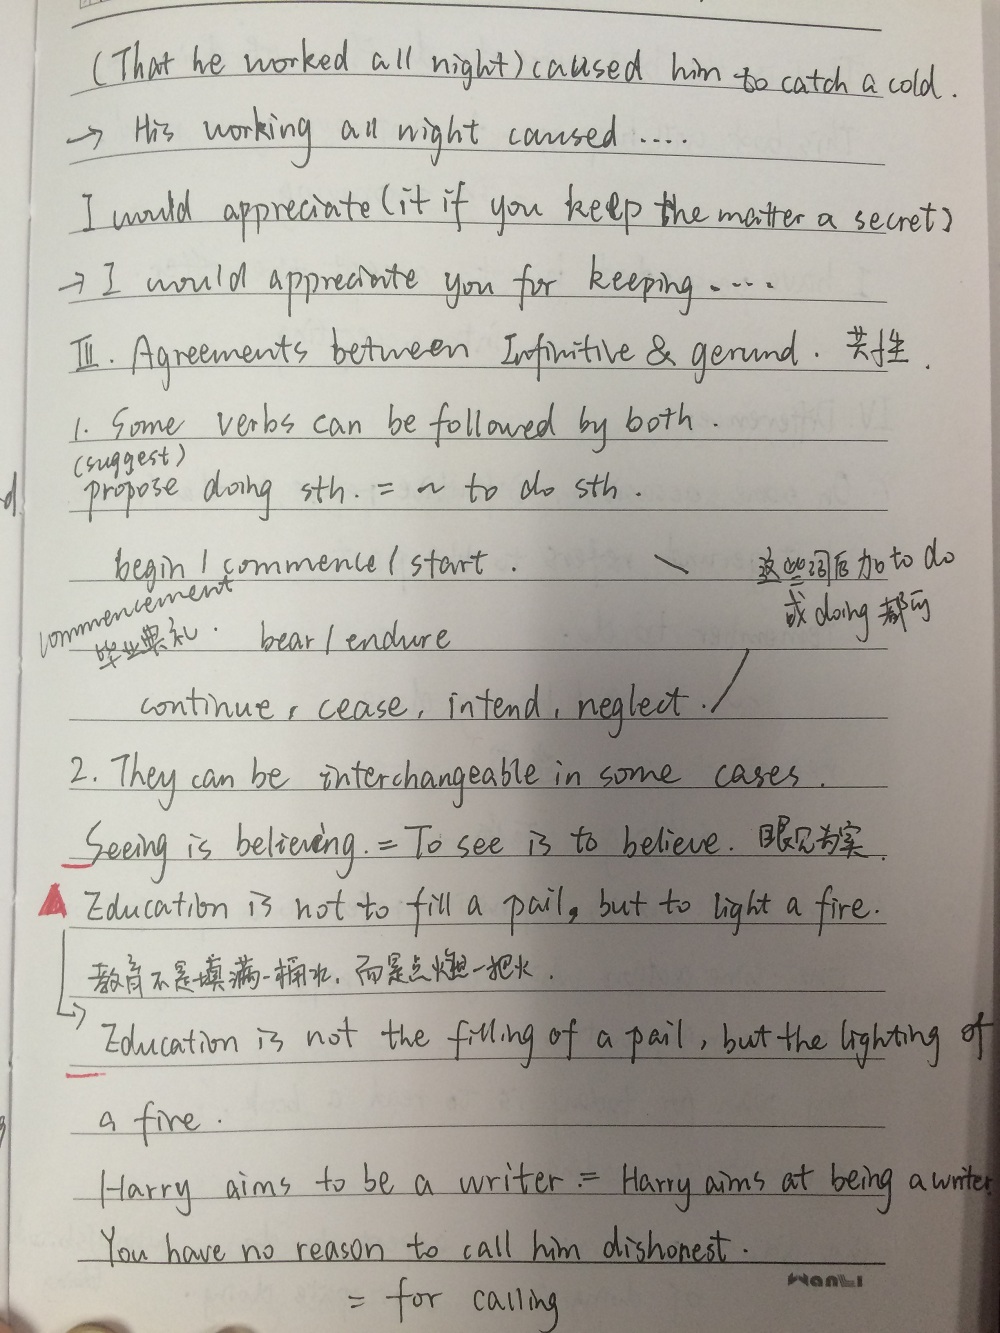 (That he worked all night) caused him to catch a cold.
→ His working all night caused ....
I would appreciate (it if you keep the matter a secret)
→ I would appreciate you for keeping ....
III. Agreements between Infinitive & gerund. 共性.
1. Some verbs can be followed by both.
(suggest)
propose doing sth. = ~ to do sth.
begin / commence / start.
这些词后加 to do
或 doing 都可
commencement
毕业典礼.
bear / endure
continue, cease, intend, neglect.
2. They can be interchangeable in some cases.
Seeing is believing. = To see is to believe. 眼见为实.
Education is not to fill a pail, but to light a fire.
教育不是填满一桶水, 而是点燃一把火.
→ Education is not the filling of a pail, but the lighting of
a fire.
Harry aims to be a writer = Harry aims at being a writer
You have no reason to call him dishonest.
= for calling